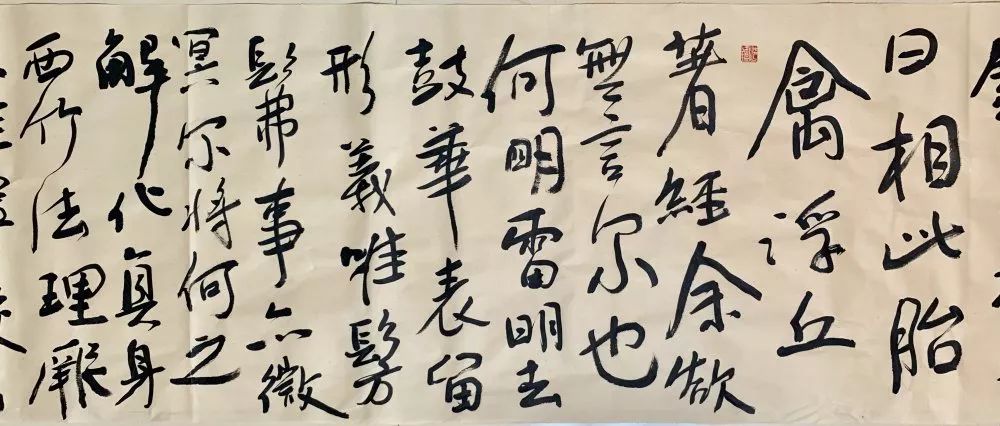 曰相此胎
禽浮丘
著經余欲
無言尔也
何明雷明去
鼓華表留
形義唯髣
髴事亦微
冥尔将何之
解化真身
西竹法理